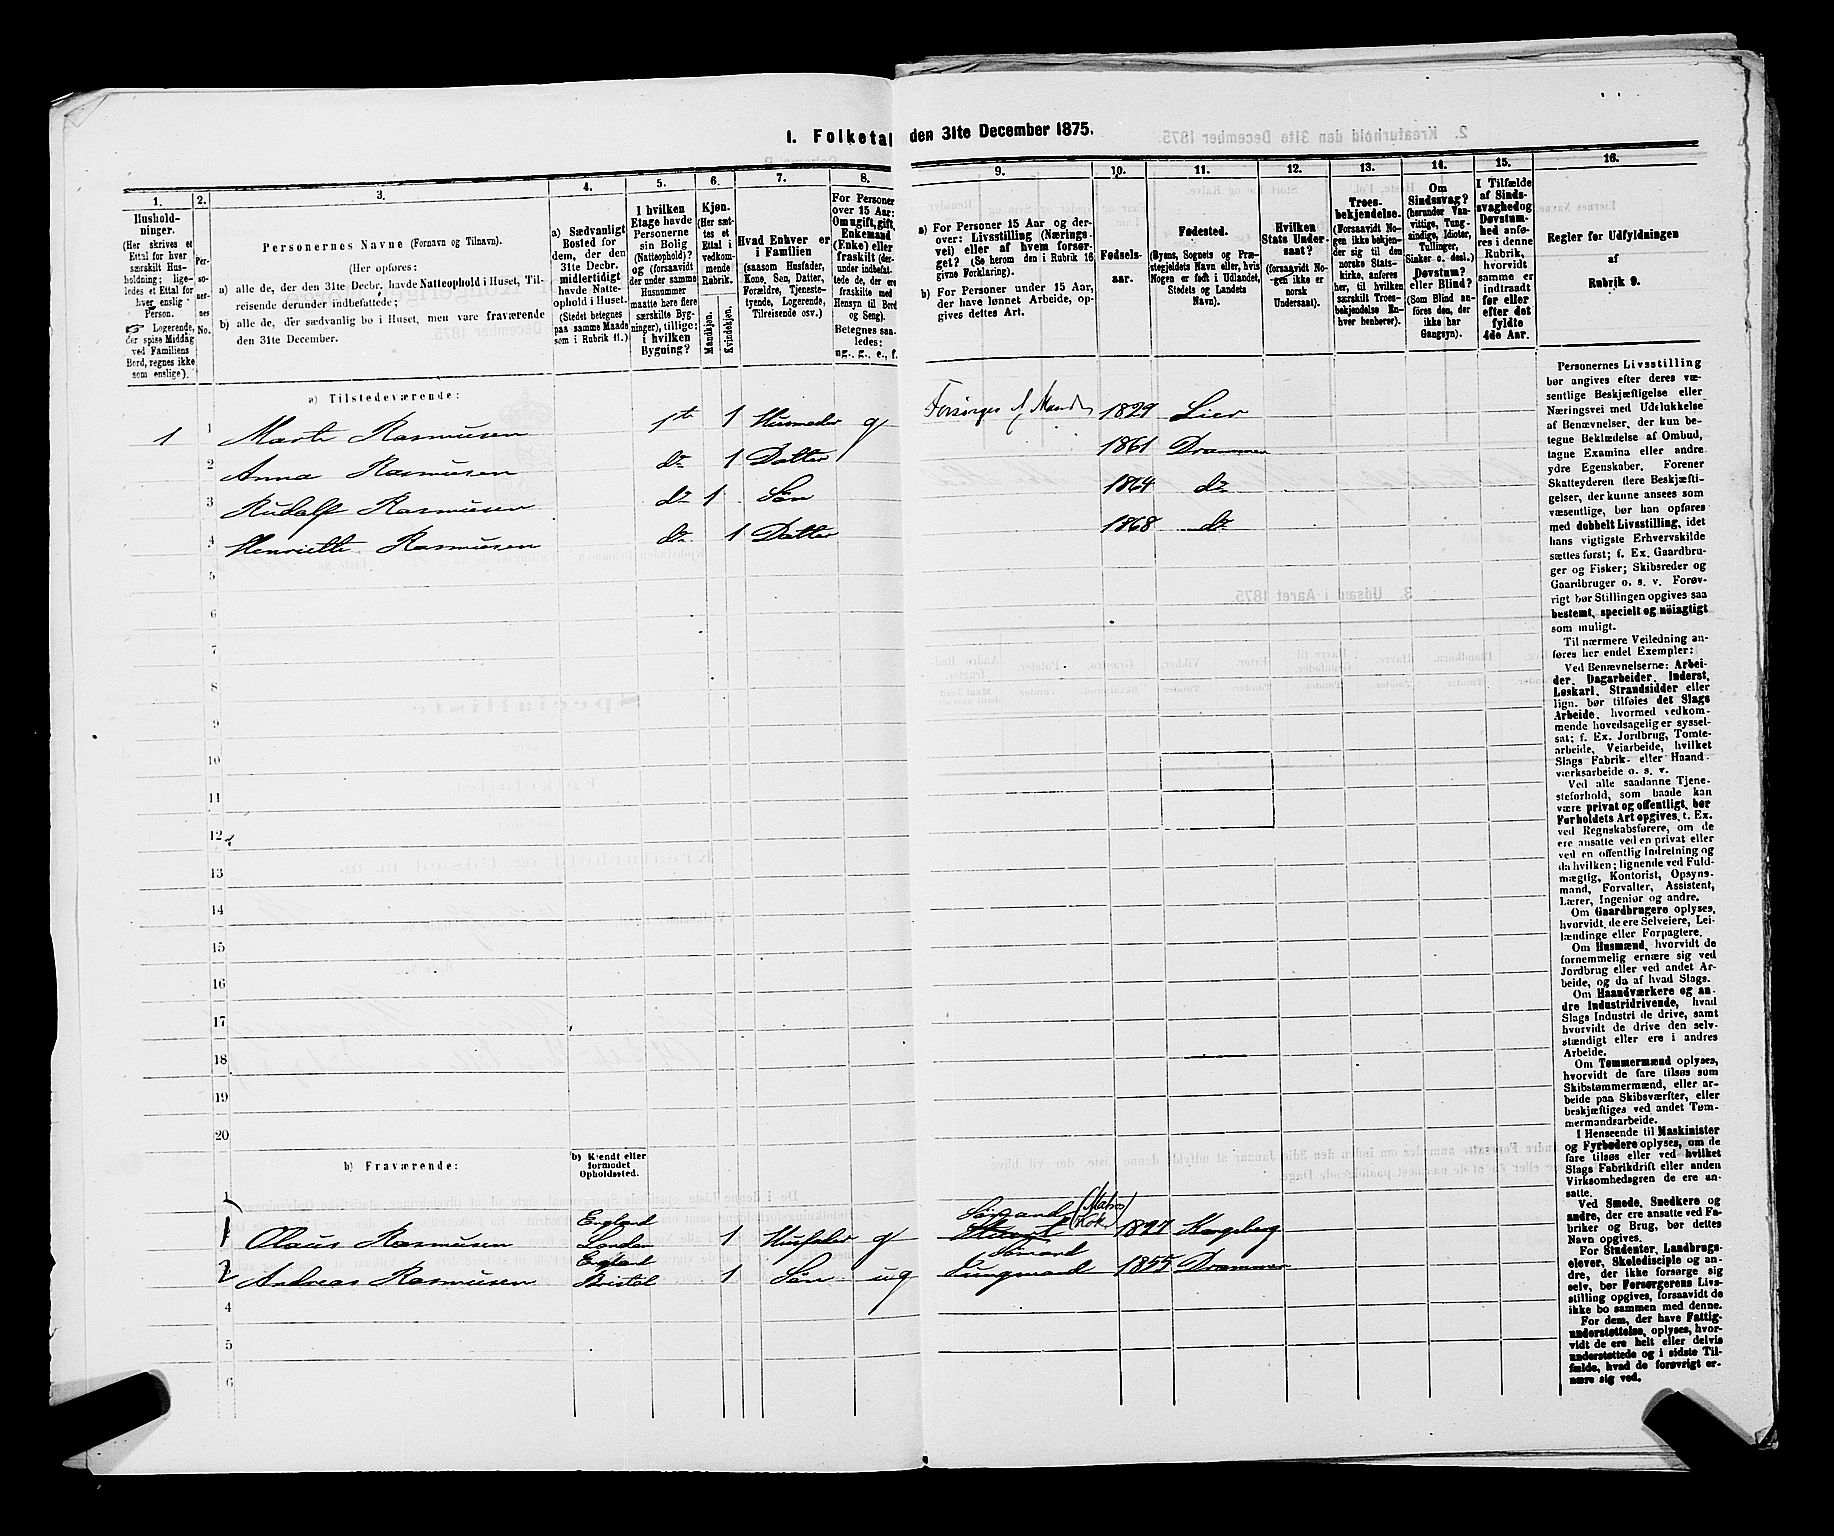 1. Folketal den 31te December 1875.
1.
Hushold-
ninger.
(Her skrives et
Ettal for hver
særskilt Hus-
holdning; lige-
ledes et Ettal for
hver enslig
Person.
Logerende,
der spise Middag
ved Familiens
Bord, regnes ikke
som enslige).
2.
Per-
so-
ner-
nes
No.
3.
Personernes Navne (Fornavn og Tilnavn).
(Her opføres:
a) alle de, der den 31te Decbr. havde Natteophold i Huset, Til-
reisende derunder indbefattede;
b) alle de, der sædvanlig bo i Huset, men vare fraværende
den 31te December.
4.
a) Sædvanligt
Bosted for
dem, der den
31te Decbr.
midlertidigt
havde Natte-
ophold i Huset.
(Stedet betegnes
paa samme Maade
som i Rubrik 11.)
5.
I hvilken
Etage havde
Personerne
sin Bolig
(Natteophold)?
og (forsaavidt
der under samme
Husnummer
maatte høre flere
særskilte Byg-
ninger), tillige:
i hvilken
Bygning?
6.
Kjøn.
(Her sæt-
tes et
Ettal i
vedkom-
mende
Rubrik.)
Mandkjøn.
Kvindekjøn.
7.
Hvad Enhver er
i Familien
(saasom Husfader,
Kone, Søn, Datter,
Forældre, Tjeneste-
tyende, Logerende,
Tilreisende osv.)
8.
For Personer
over 15 Aar:
Om ugift, gift,
Enkemand
(Enke) eller
fraskilt (der-
under indbefat-
tede de, der ere
fraskilte med
Hensyn til Bord
og Seng).
Betegnes saa-
ledes:
ug., g., e., f.
9.
a) For Personer 15 Aar og der-
over: Livsstilling (Nærings-
vei) eller af hvem forsør-
get? (Se herom den i Rubrik 16
givne Forklaring).
b) For Personer under 15 Aar,
der have lønnet Arbeide, op-
gives dettes Art.
10.
Fødsels-
aar.
11.
Fødested.
(Byens, Sognets og Præ-
stegjeldets Navn eller, hvis
Nogen er født i Udlandet,
Stedets og Landets
Navn).
12.
Hvilken
Stats Under-
saat?
(forsaavidt No-
gen ikke er
norsk
Undersaat).
13.
Troes-
bekjendelse.
(Forsaavidt No-
gen ikke bekjen-
der sig til den
norske Stats-
kirke, anføres
her, til hvilken
særskilt Troes-
bekjendelse En-
hver henhører).
14.
Om
Sindssvag?
(herunder Van-
vittige, Tung-
sindige, Idioter,
Tullinger,
Sinker o. desl.)
Døvstum?
eller Blind?
(Som Blind an-
føres den, der
ikke har
Gangsyn).
15.
I Tilfælde
af Sinds-
svaghed og
Døvstum-
hed anfø-
res i denne
Rubrik,
hvorvidt
samme er
indtraadt
før eller
efter det
fyldte
4de Aar.
16.
Regler for Udfyldningen
af
Rubrik 9.
a) Tilstedeværende:
1 1 Marte Rasmusen 1ste 1 Husmoder g Forsørges af Manden 1829 Lier
2 Anna Rasmusen do 1 Datter 1861 Drammen
3 Rudolf Rasmusen do 1 Søn 1864 do
4 Henriette Rasmusen do 1 Datter 1868 do
5
6
7
8
9
10
11
12
13
14
15
16
17
18
19
20
b) Fraværende:
b) Kjendt eller
formodet
Opholdssted.
1
England Sømand (Matros
1 Olaus Rasmusen London 1 Husfader g Kok) 1827 Kongsberg
England Sømand
2 Andreas Rasmusen Bristol 1 Søn ug Jungmand 1855 Drammen
4
5
6
Personernes Livsstilling
bør angives efter deres væ-
sentlige Beskjæftigelse eller
Næringsvei med Udelukkelse
af Benævnelser, der kun be-
tegne Beklædelse af Ombud,
tagne Examina eller andre
ydre Egenskaber. Forener
Skatteyderen flere Beskjæfti-
gelser, der kunne ansees som
væsentlige, bør han opføres
med dobbelt Livsstilling, idet
hans vigtigste Erhvervskilde
sættes først; f. Ex. Gaardbru-
ger og Fisker; Skibsreder og
Gaardbruger o. s. v. Forøv-
rigt bør Stillingen opgives saa
bestemt, specielt og nöiagtigt
som muligt.
Til nærmere Veiledning an-
føres her endel Exempler:
Ved Benævnelserne: Arbei-
der, Dagarbeider, Inderst,
Løskarl, Strandsidder eller
lign. bør tilføies det Slags
Arbeide, hvormed vedkom-
mende hovedsagelig er syssel-
sat; f. Ex. Jordbrug, Tomte-
arbeide, Veiarbeide, hvilket
Slags Fabrik- eller Haand-
værksarbeide o. s. v.
Ved alle saadanne Tjene-
steforhold, som baade kan
være privat og offentligt, bør
Forholdets Art opgives, t. Ex.
ved Regnskabsførere, om de
ere ansatte ved en privat eller
ved en offentlig Indretning og
da hvilken; lignende ved Fuld-
mægtig, Kontorist, Opsyns-
mand, Forvalter, Assistent,
Lærer, Ingeniør og andre.
Om Gaardbrugere oplyses,
hvorvidt de ere Selveiere, Lei-
lændinge eller Forpagtere.
Om Husmænd, hvorvidt de
fornemmelig ernære sig ved
Jordbrug eller ved andet Ar-
beide, og da af hvad Slags.
Om Haandværkere og an-
dre Industridrivende, hvad
Slags Industri de drive, samt
hvorvidt de drive den selv-
stændigt eller ere i andres
Arbeide.
Om Tømmermænd oplyses,
hvorvidt de fare tilsøs som
Skibstømmermænd, eller ar-
beide paa Skibsværfter, eller
beskjæftiges ved andet Tøm-
mermandsarbeide.
I Henseende til Maskinister
og Fyrbødere oplyses, om de
fare tilsøs eller ved hvilket
Slags Fabrikdrift eller anden
Virksomhedsgren de ere an-
satte.
Ved Smede, Snedkere og
andre, der ere ansatte ved Fa-
briker og Brug, bør dettes
Navn opgives.
For Studenter, Landbrugs-
elever, Skoledisciple og an-
dre, der ikke forsørge sig
selv, bør Forsørgerens Livs-
stilling opgives, forsaavidt de
ikke bo sammen med denne.
For dem, der have Fattig-
understøttelse, oplyses, hvor-
vidt de ere helt eller delvis
understøttede og i sidste Til-
fælde, hvad de forøvrigt er-
nære sig ved.